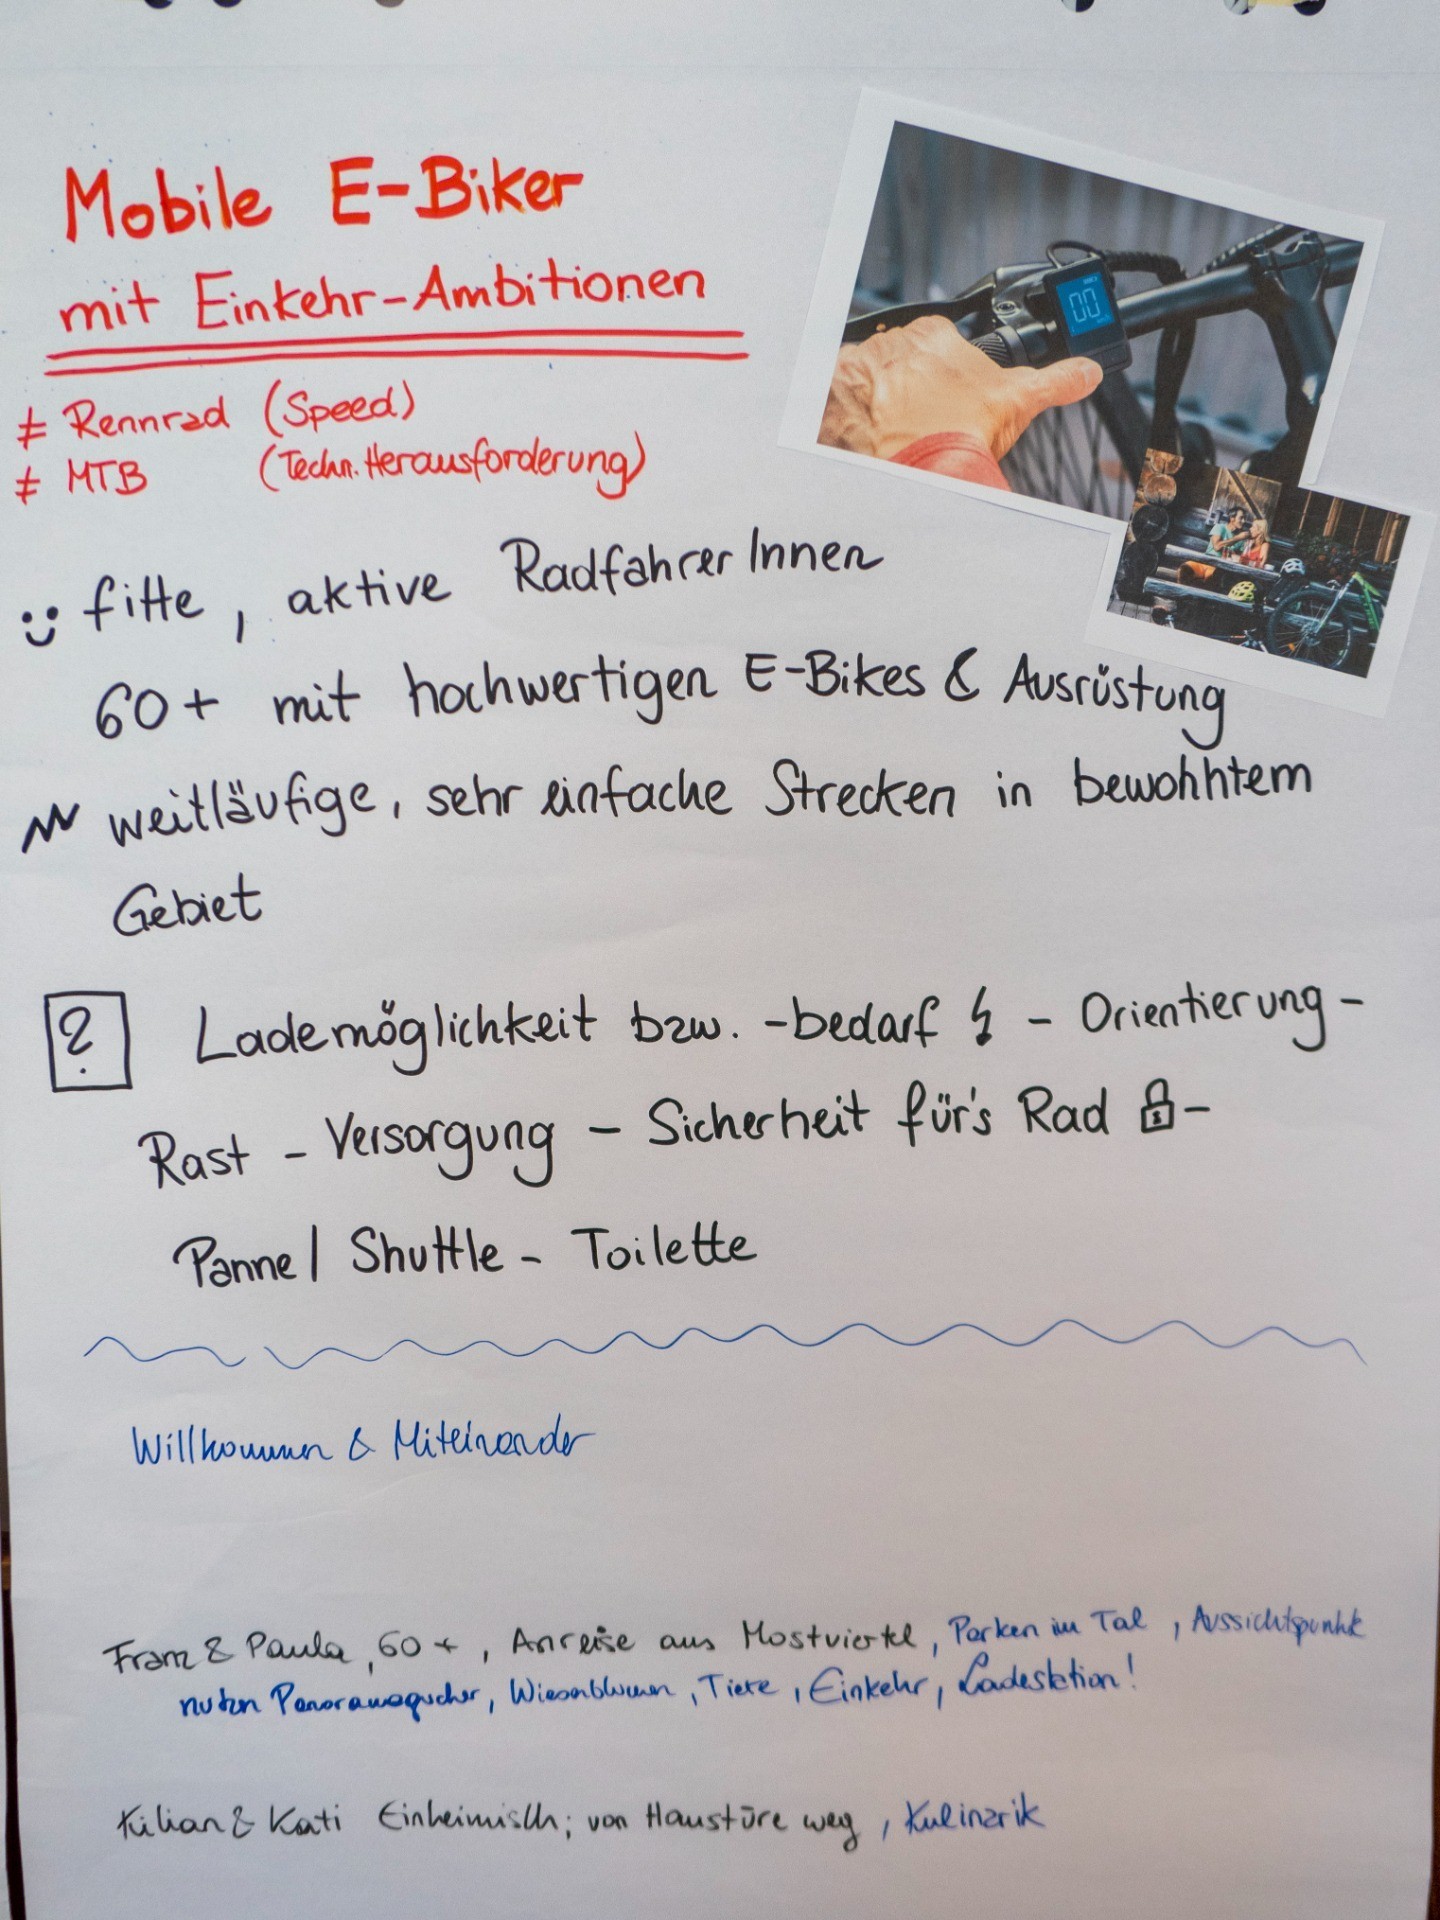 Mobile E-Biker
mit Einkehr-Ambitionen
≠ Rennrad (Speed)
≠ MTB (Techn. Herausforderung)
00
fitte, aktive RadfahrerInnen
60+ mit hochwertigen E-Bikes & Ausrüstung
weitläufige, sehr einfache Strecken in bewohntem
Gebiet
? Lademöglichkeit bzw. -bedarf - Orientierung -
Rast - Versorgung - Sicherheit für's Rad -
Panne / Shuttle - Toilette
Willkommen & Miteinander
Franz & Paula, 60+, Anreise aus Mostviertel, Parken im Tal, Aussichtspunkte
nutzen Panoramagucker, Wiesenblumen, Tiere, Einkehr, Ladestation!
Kilian & Kati Einheimisch; von Haustüre weg, Kulinarik